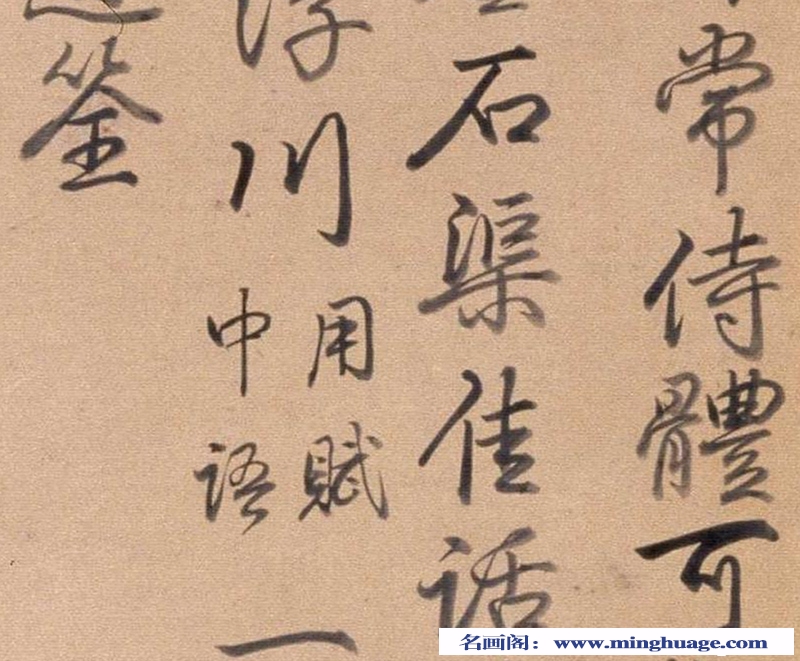 常侍體可
石渠佳話
浮川用賦中語一
筌
名画阁：www.minghuage.com